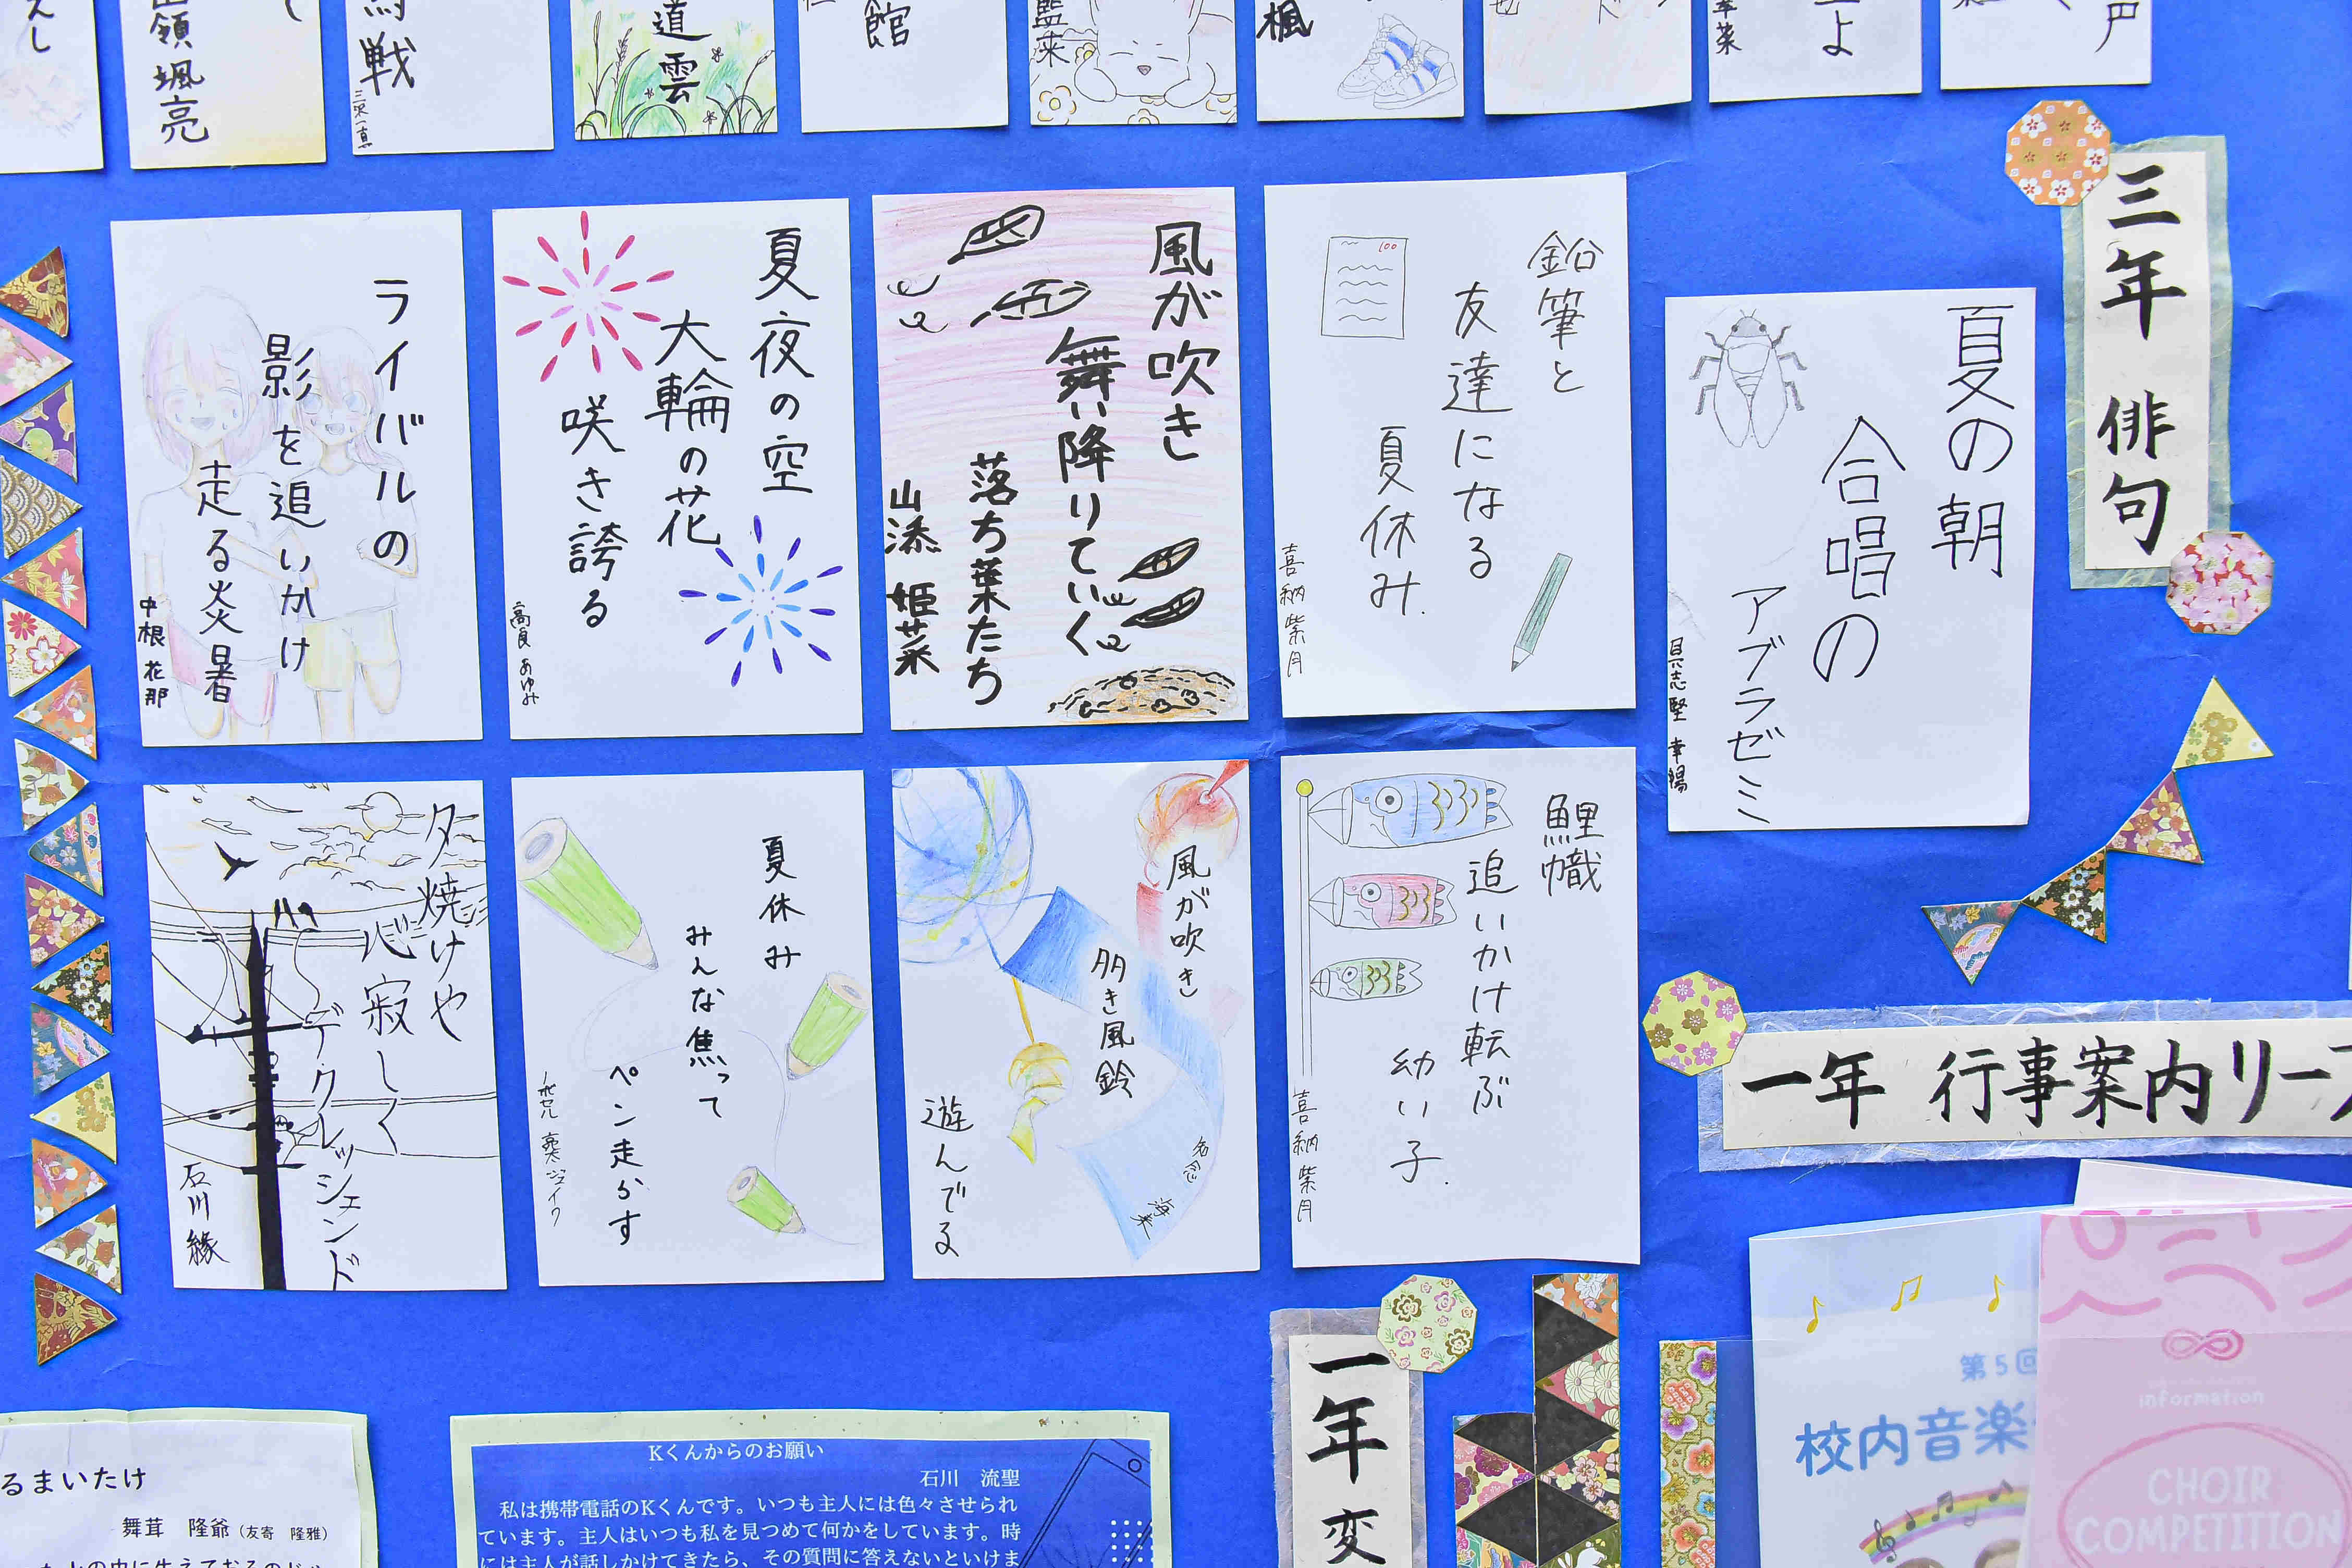 えし
颯亮
戦
三沢一真
道
雲
館
藍来
楓
よ
戸
三年 俳句
夏の朝
合唱の
アブラゼミ
具志堅 幸陽
鉛筆と
友達になる
夏休み.
喜納 紫月
風が吹き
舞い降りていく
落ち葉たち
山添 姫菜
夏夜の空
大輪の花
咲き誇る
高良 あゆみ
ライバルの
影を追いかけ
走る炎暑
中根 花那
鯉幟
追いかけ転ぶ
幼い子.
喜納 紫月
風が吹き
多き風鈴
遊んでる
夏休み
みんな焦って
ペン走らす
夕焼けや
心寂しく
デクレッシェンド
石川 縁
一年 行事案内リー
一年 変
第5回
校内音楽
information
CHOIR
COMPETITION
るまいたけ
舞茸 隆爺(友寄 隆雅)
Kくんからのお願い
石川 流聖
私は携帯電話のKくんです。いつも主人には色々させられ
ています。主人はいつも私を見つめて何かをしています。時
には主人が話しかけてきたら、その質問に答えないといけま